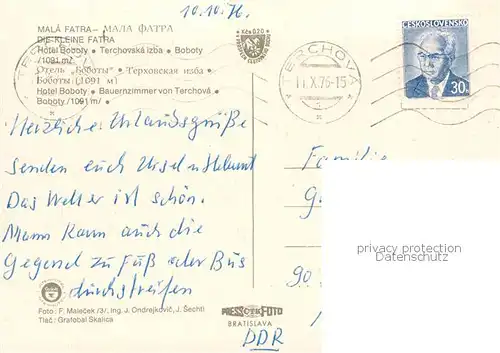 10.10.76.
MALÁ FATRA – МАЛА ФАТРА
DIE KLEINE FATRA
Hotel Boboty • Terchovská izba • Boboty
/1091 m/
Отель „Боботы" • Терховская изба •
Боботы (1091 м)
Hotel Boboty • Bauernzimmer von Terchová •
Boboty /1091 m/
Kčs 0,20
ČESKOSLOVENSKO
30h
TERCHOVÁ
11.X.76-15
Herzliche Urlaubsgrüße
senden euch Ursel u. Helmut
Das Wetter ist schön.
Mann kann auch die
Gegend zu Fuß oder Bus
durchstreifen
Familie
G
90
DDR
privacy protection
Datenschutz
Foto: F. Maleček /3/, Ing. J. Ondrejkovič, J. Šechtl
Tlač: Grafobal Skalica
PRESSFOTO
BRATISLAVA